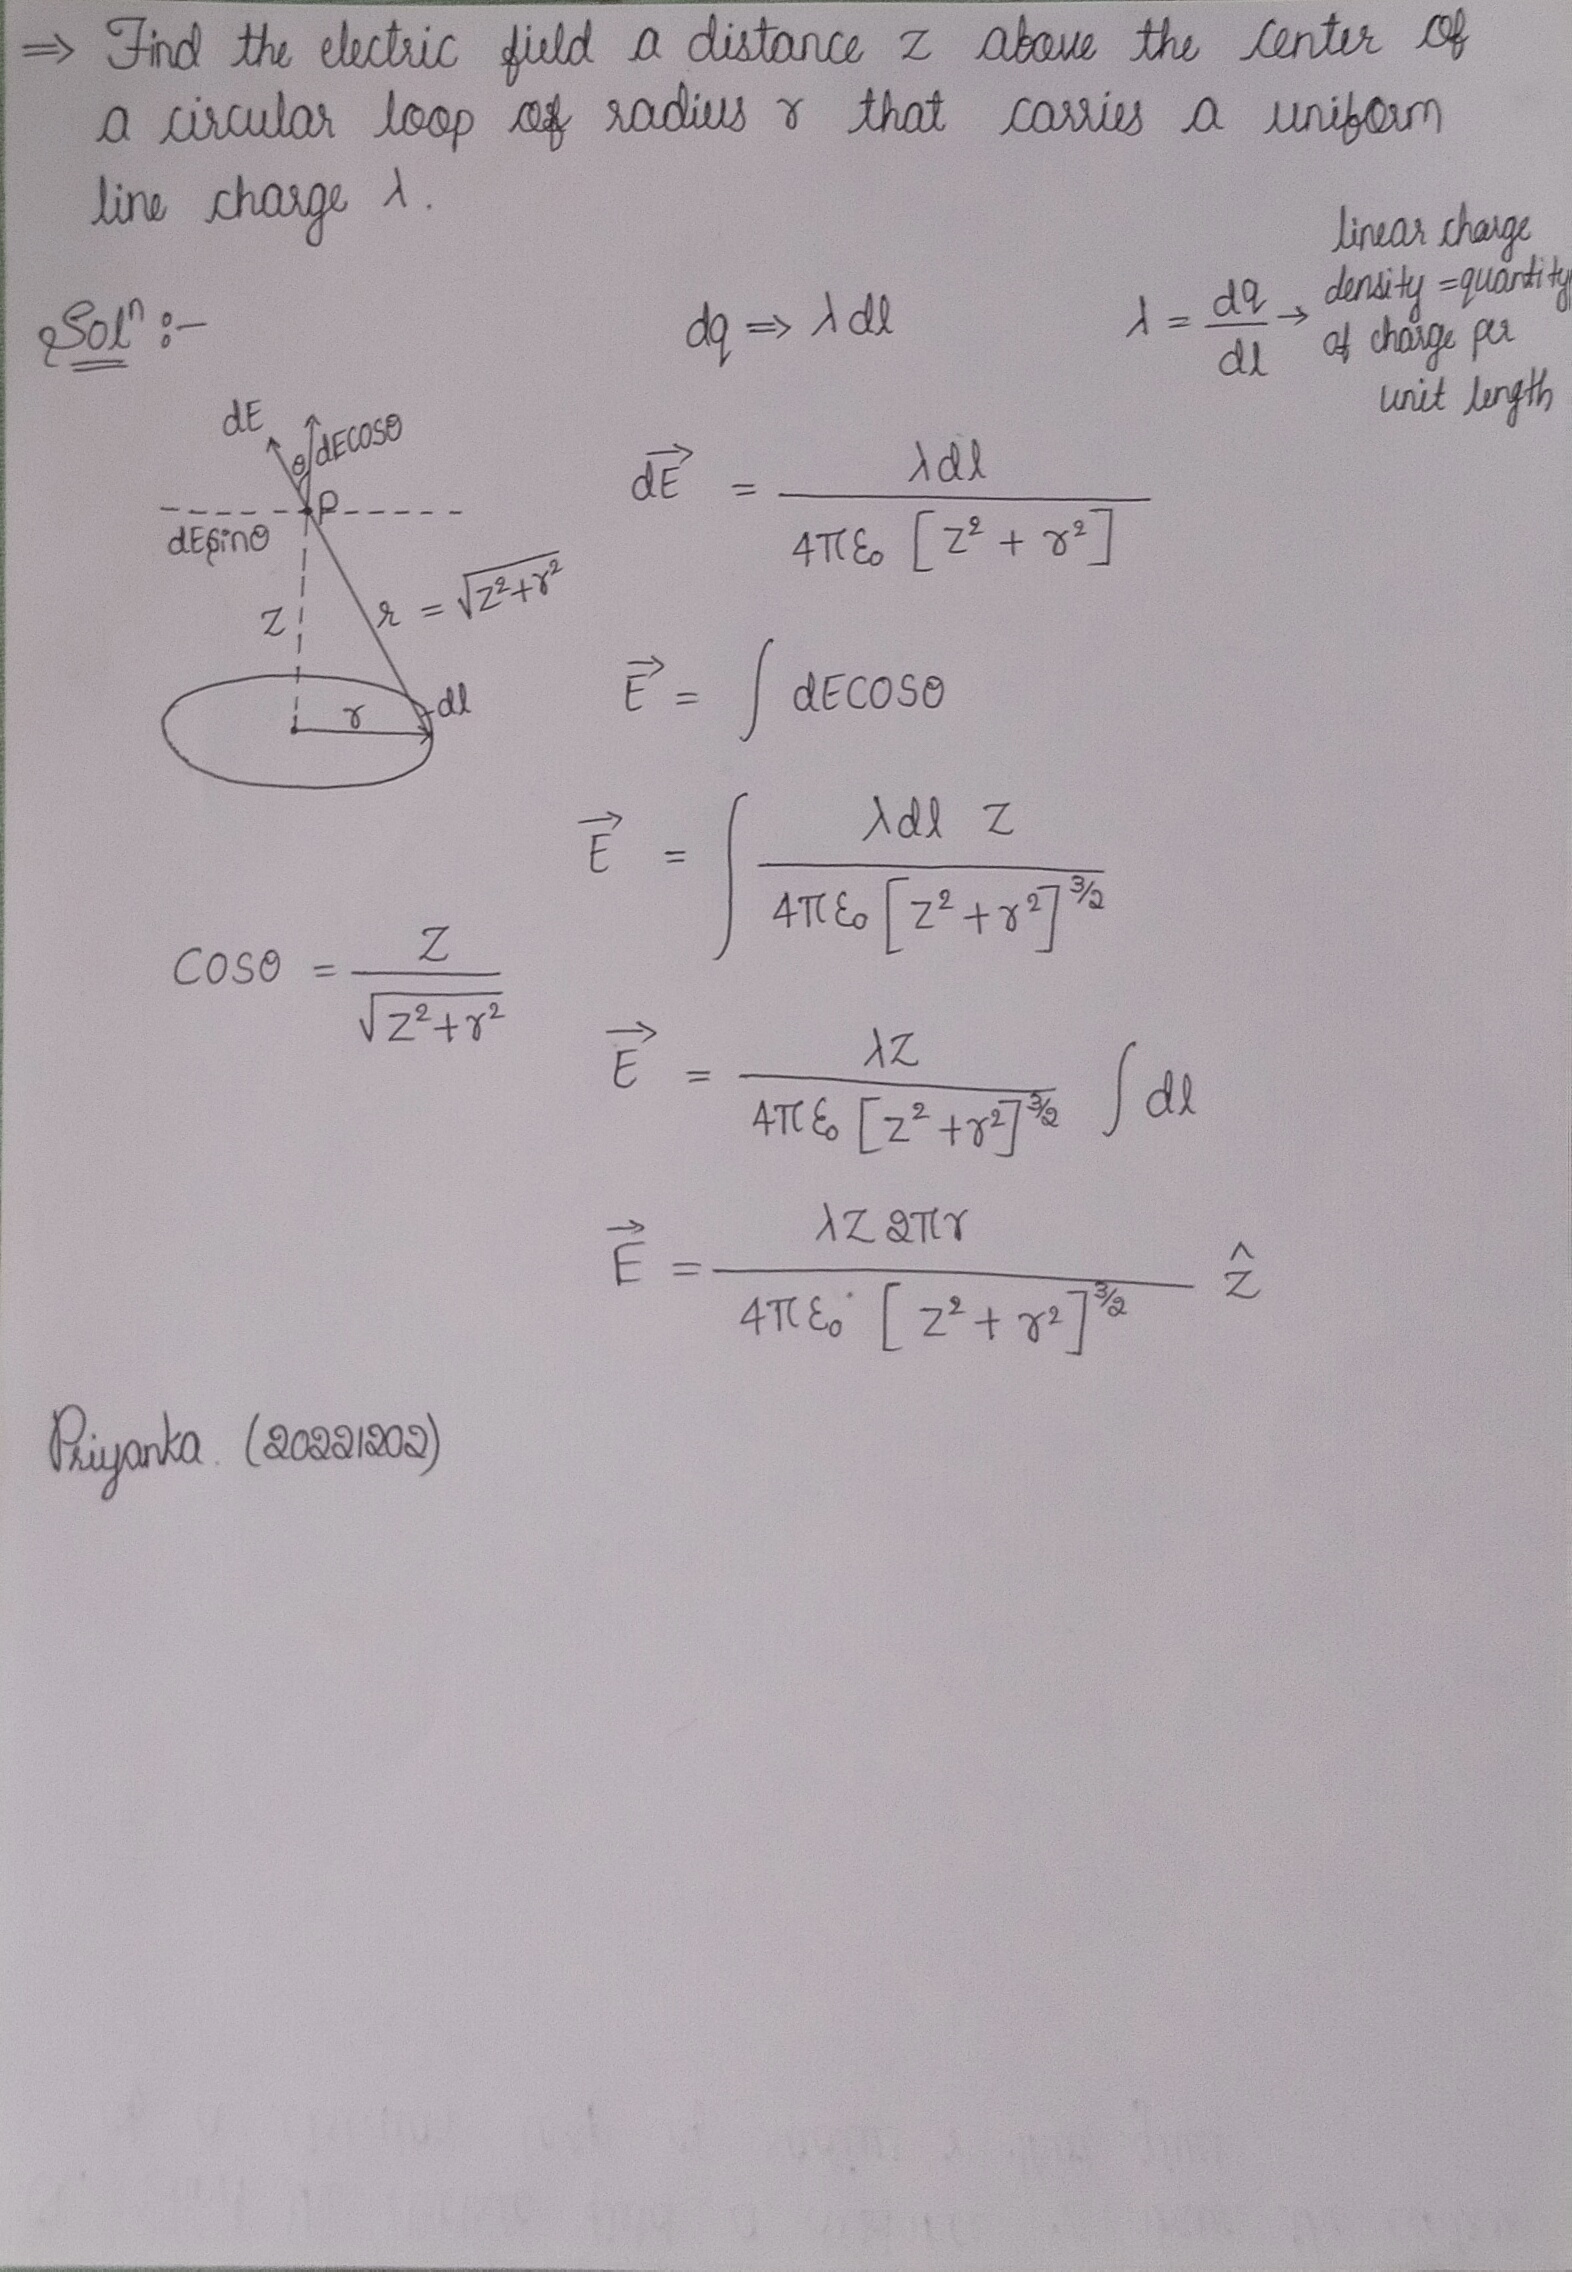 ⇒ Find the electric field a distance z above the center of
a circular loop of radius r that carries a uniform
line charge λ.
Solⁿ :-
dq ⇒ λdl
λ = dq/dl → linear charge
density = quantity
of charge per
unit length
dE
dEcosθ
θ
P
dEsinθ
z
r = √z²+r²
r
dl
dE⃗ = λdl / 4πε₀ [z² + r²]
E⃗ = ∫ dEcosθ
E⃗ = ∫ λdl z / 4πε₀ [z² + r²]^3/2
cosθ = z / √z²+r²
E⃗ = λz / 4πε₀ [z² + r²]^3/2 ∫ dl
E⃗ = λz 2πr / 4πε₀ [z² + r²]^3/2 ẑ
Priyanka. (20221202)